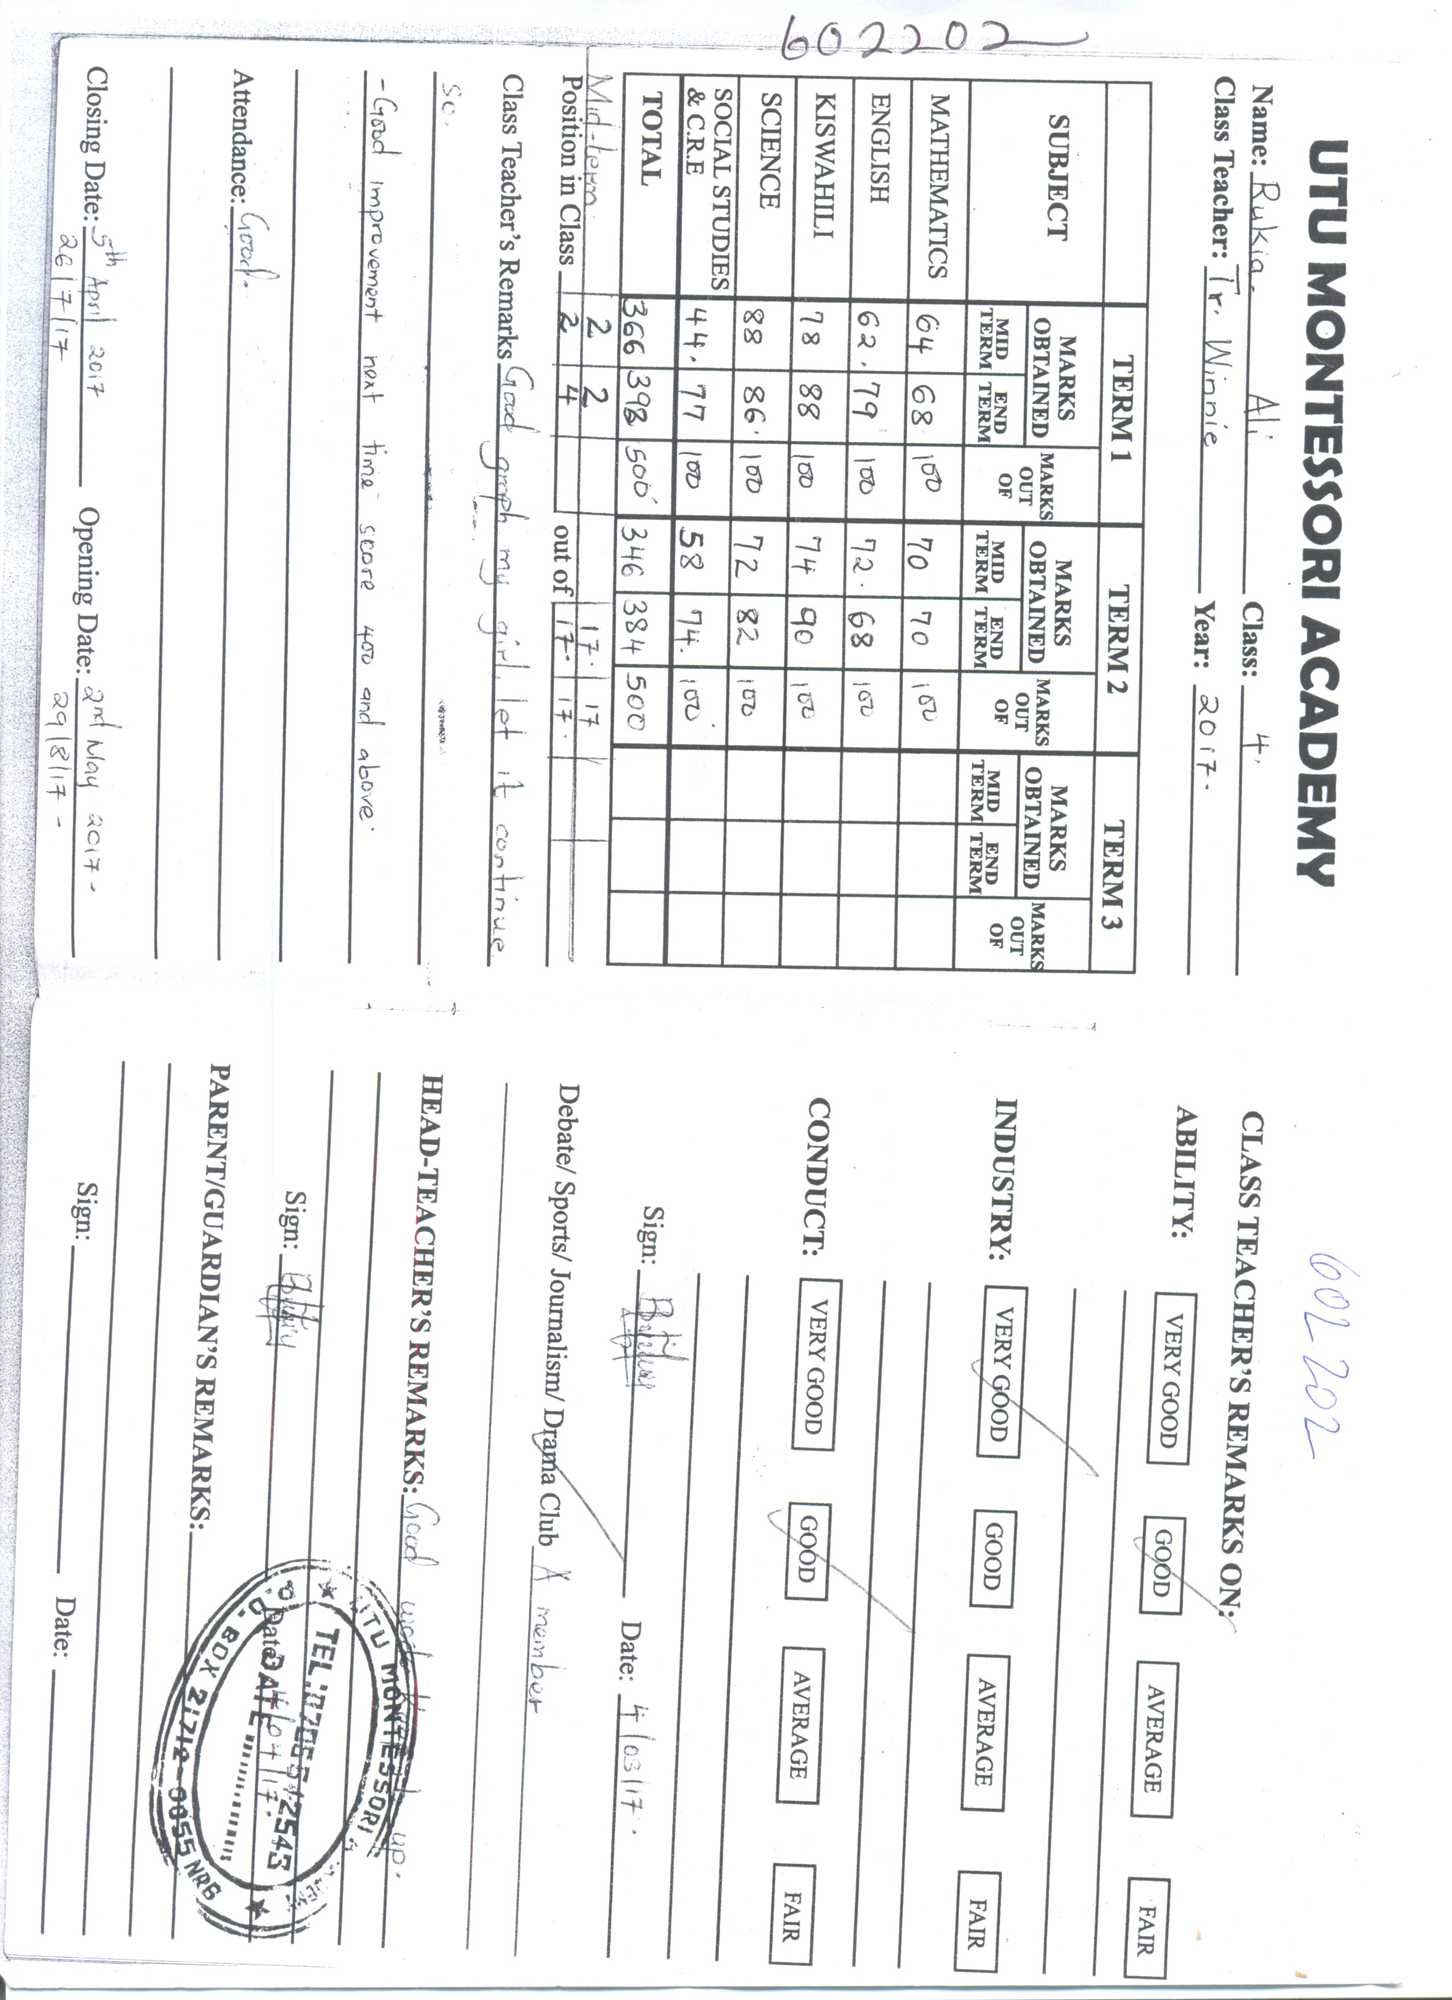 602202
UTU MONTESSORI ACADEMY
Name: Rukia Ali Class: 4.
Class Teacher: Tr. Winnie Year: 2017.
TERM 1 TERM 2 TERM 3
SUBJECT MARKS OBTAINED MARKS OUT OF MARKS OBTAINED MARKS OUT OF MARKS OBTAINED MARKS OUT OF
MID TERM END TERM MID TERM END TERM MID TERM END TERM
MATHEMATICS 64 68 100 70 70 100
ENGLISH 62. 79 100 72. 68 100
KISWAHILI 78 88 100 74 90 100
SCIENCE 88 86. 100 72 82 100
SOCIAL STUDIES & C.R.E 44. 77 100 58 74. 100
TOTAL 366 398 500 346 384 500
Mid-term 2 2 17. 17
Position in Class 2 4 out of 17. 17.
Class Teacher's Remarks Good graph my girl, let it continue
so.
- Good improvement next time score 400 and above.
Attendance: Good.
Closing Date: 5th April 2017 Opening Date: 2nd May 2017 -
26/7/17 29/8/17 -
602202
CLASS TEACHER'S REMARKS ON:
ABILITY: VERY GOOD GOOD AVERAGE FAIR
INDUSTRY: VERY GOOD GOOD AVERAGE FAIR
CONDUCT: VERY GOOD GOOD AVERAGE FAIR
Sign: Date: 4/03/17.
Debate/ Sports/ Journalism/ Drama Club A member
HEAD-TEACHER'S REMARKS: Good work up.
Sign: Date: 4/04/17.
UTU MONTESSORI
TEL: 0706512543
DATE
P. O. BOX 21712-0055 NRB
PARENT/GUARDIAN'S REMARKS:
Sign: Date: